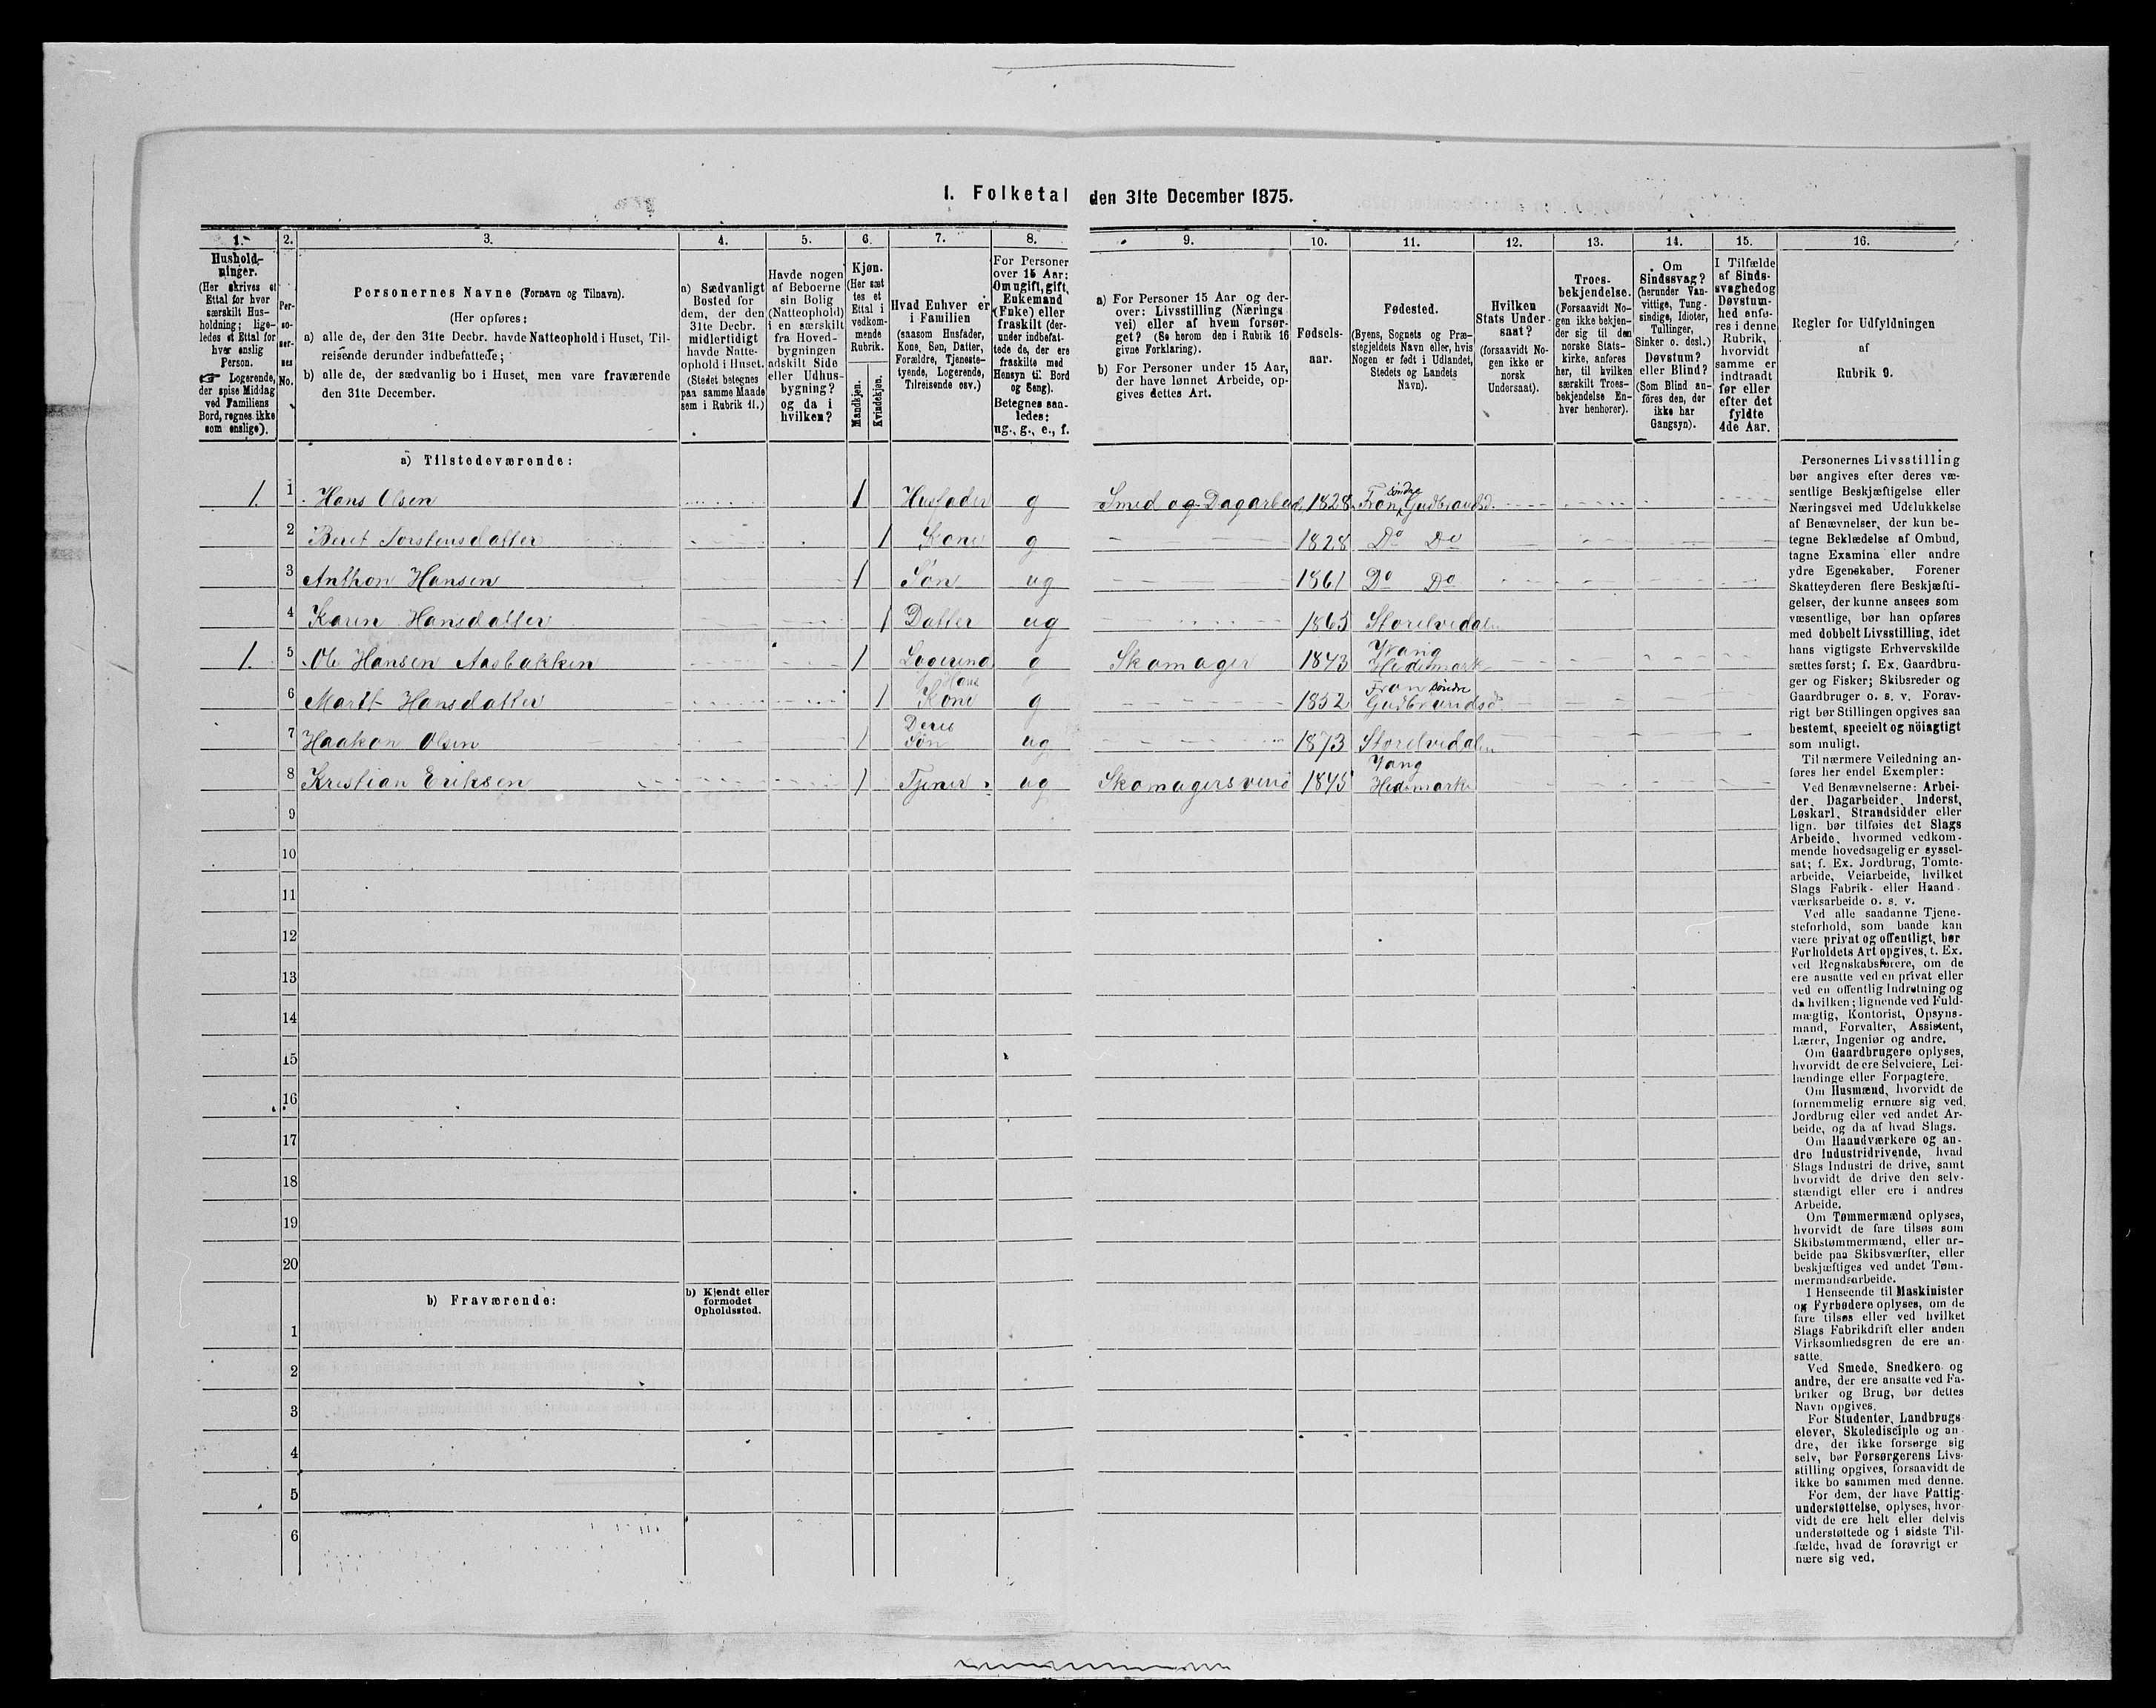 I. Folketal den 31te December 1875.
1. 2. 3. 4. 5. 6. 7. 8. 9. 10. 11. 12. 13. 14. 15. 16.
Hushold-
ninger.
(Her skrives et
Ettal for hver
særskilt Hus-
holdning; lige-
ledes et Ettal for
hver enslig
Person.
☞ Logerende,
der spise Middag
ved Familiens
Bord, regnes ikke
som enslige).
Per-
so-
ner-
nes
No.
Personernes Navne (Fornavn og Tilnavn).
(Her opføres:
a) alle de, der den 31te Decbr. havde Natteophold i Huset, Til-
reisende derunder indbefattede;
b) alle de, der sædvanlig bo i Huset, men vare fraværende
den 31te December.
a) Sædvanligt
Bosted for
dem, der den
31te Decbr.
midlertidigt
havde Natte-
ophold i Huset.
(Stedet betegnes
paa samme Maade
som i Rubrik 11.)
Havde nogen
af Beboerne
sin Bolig
(Natteophold)
i en særskilt
fra Hoved-
bygningen
adskilt Side
eller Udhus-
bygning?
og da i
hvilken?
Kjøn.
(Her sæt
tes et
Ettal i
vedkom-
mende
Rubrik.
Mandkjøn.
Kvindekjøn.
Hvad Enhver er
i Familien
(saasom Husfader,
Kone, Søn, Datter,
Forældre, Tjeneste-
tyende, Logerende,
Tilreisende osv.)
For Personer
over 15 Aar:
Om ugift, gift,
Enkemand
(Enke) eller
fraskilt (der-
under indbefat-
tede de, der ere
fraskilte med
Hensyn til Bord
og Seng).
Betegnes saa-
ledes:
ug., g., e., f.
a) For Personer 15 Aar og der-
over: Livsstilling (Nærings
vei) eller af hvem forsør-
get? (Se herom den i Rubrik 16
givne Forklaring).
b) For Personer under 15 Aar,
der have lønnet Arbeide, op-
gives dettes Art.
Fødsels-
aar.
Fødested.
(Byens, Sognets og Præ-
stegjeldets Navn eller, hvis
Nogen er født i Udlandet,
Stedets og Landets
Navn).
Hvilken
Stats Under-
saat?
(forsaavidt No-
gen ikke er
norsk
Undersaat).
Troes-
bekjendelse.
(Forsaavidt No-
gen ikke bekjen-
der sig til den
norske Stats-
kirke, anføres
her, til hvilken
særskilt Troes-
bekjendelse En-
hver henhører).
Om
Sindssvag?
(herunder Van-
vittige, Tung-
sindige, Idioter,
Tullinger,
Sinker o. desl.)
Døvstum?
eller Blind?
(Som Blind an-
føres den, der
ikke har
Gangsyn).
I Tilfælde
af Sinds-
svaghed og
Døvstum-
hed anfø-
res i denne
Rubrik,
hvorvidt
samme er
indtraadt
før eller
efter det
fyldte
4de Aar.
Regler for Udfyldningen
af
Rubrik 9.
a) Tilstedeværende:
1. 1 Hans Olsen 1 Husfader g Smed og Dagarbeid. 1828 Fron søndre Gudbrandsd.
2 Beret Torstensdatter 1 Kone g 1828 Do Do
3 Anthon Hansen 1 Søn ug 1861 Do Do
4 Karen Hansdatter 1 Datter ug 1865 Storelvedalen
1. 5 Ole Hansen Aasbakken 1 Logerend g Skomager 1843 Vang Hedemark
6 Marit Hansdatter 1 Hans Kone g 1852 Fron søndre Gudbrandsd.
7 Haakon Olsen 1 Deres Søn ug 1873 Storelvedalen
8 Kristian Eriksen 1 Tjener ug Skomagersvend 1845 Vang Hedemark
9
10
11
12
13
14
15
16
17
18
19
20
b) Fraværende:
b) Kjendt eller
formodet
Opholdssted.
1
2
3
4
5
6
Personernes Livsstilling
bør angives efter deres væ-
sentlige Beskjæftigelse eller
Næringsvei med Udelukkelse
af Benævnelser, der kun be-
tegne Beklædelse af Ombud,
tagne Examina eller andre
ydre Egenskaber. Forener
Skatteyderen flere Beskjæfti-
gelser, der kunne ansees som
væsentlige, bør han opføres
med dobbelt Livsstilling, idet
hans vigtigste Erhvervskilde
sættes først; f. Ex. Gaardbru-
ger og Fisker; Skibsreder og
Gaardbruger o. s. v. Forøv-
rigt bør Stillingen opgives saa
bestemt, specielt og nöiagtigt
som muligt.
Til nærmere Veiledning an-
føres her endel Exempler:
Ved Benævnelserne: Arbei-
der, Dagarbeider, Inderst,
Løskarl, Strandsidder eller
lign. bør tilføies det Slags
Arbeide, hvormed vedkom-
mende hovedsagelig er syssel-
sat; f. Ex. Jordbrug, Tomte-
arbeide, Veiarbeide, hvilket
Slags Fabrik- eller Haand-
værksarbeide o. s. v.
Ved alle saadanne Tjene-
steforhold, som baade kan
være privat og offentligt, bør
Forholdets Art opgives, t. Ex.
ved Regnskabsførere, om de
ere ansatte ved en privat eller
ved en offentlig Indretning og
da hvilken; lignende ved Fuld-
mægtig, Kontorist, Opsyns-
mand, Forvalter, Assistent,
Lærer, Ingeniør og andre.
Om Gaardbrugere oplyses,
hvorvidt de ere Selveiere, Lei-
lændinge eller Forpagtere.
Om Husmænd, hvorvidt de
fornemmelig ernære sig ved
Jordbrug eller ved andet Ar-
beide, og da af hvad Slags.
Om Haandværkere og an-
dre Industridrivende, hvad
Slags Industri de drive, samt
hvorvidt de drive den selv-
stændigt eller ere i andres
Arbeide.
Om Tømmermænd oplyses,
hvorvidt de fare tilsøs som
Skibstømmermænd, eller ar-
beide paa Skibsværfter, eller
beskjæftiges ved andet Tøm-
mermandsarbeide.
I Henseende til Maskinister
og Fyrbødere oplyses, om de
fare tilsøs eller ved hvilket
Slags Fabrikdrift eller anden
Virksomhedsgren de ere an-
satte.
Ved Smede, Snedkere og
andre, der ere ansatte ved Fa-
briker og Brug, bør dettes
Navn opgives.
For Studenter, Landbrugs-
elever, Skoledisciple og an-
dre, der ikke forsørge sig
selv, bør Forsørgerens Livs-
stilling opgives, forsaavidt de
ikke bo sammen med denne.
For dem, der have Fattig-
understøttelse, oplyses, hvor-
vidt de ere helt eller delvis
understøttede og i sidste Til-
fælde, hvad de forøvrigt er
nære sig ved.